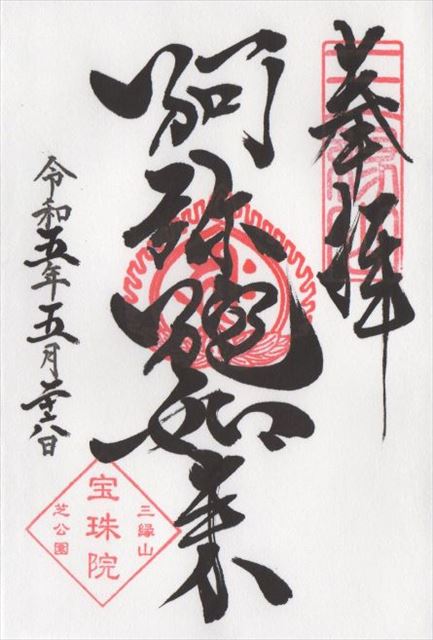 奉拝
阿弥陀如来
令和五年五月廿八日
三縁山
宝珠院
芝公園